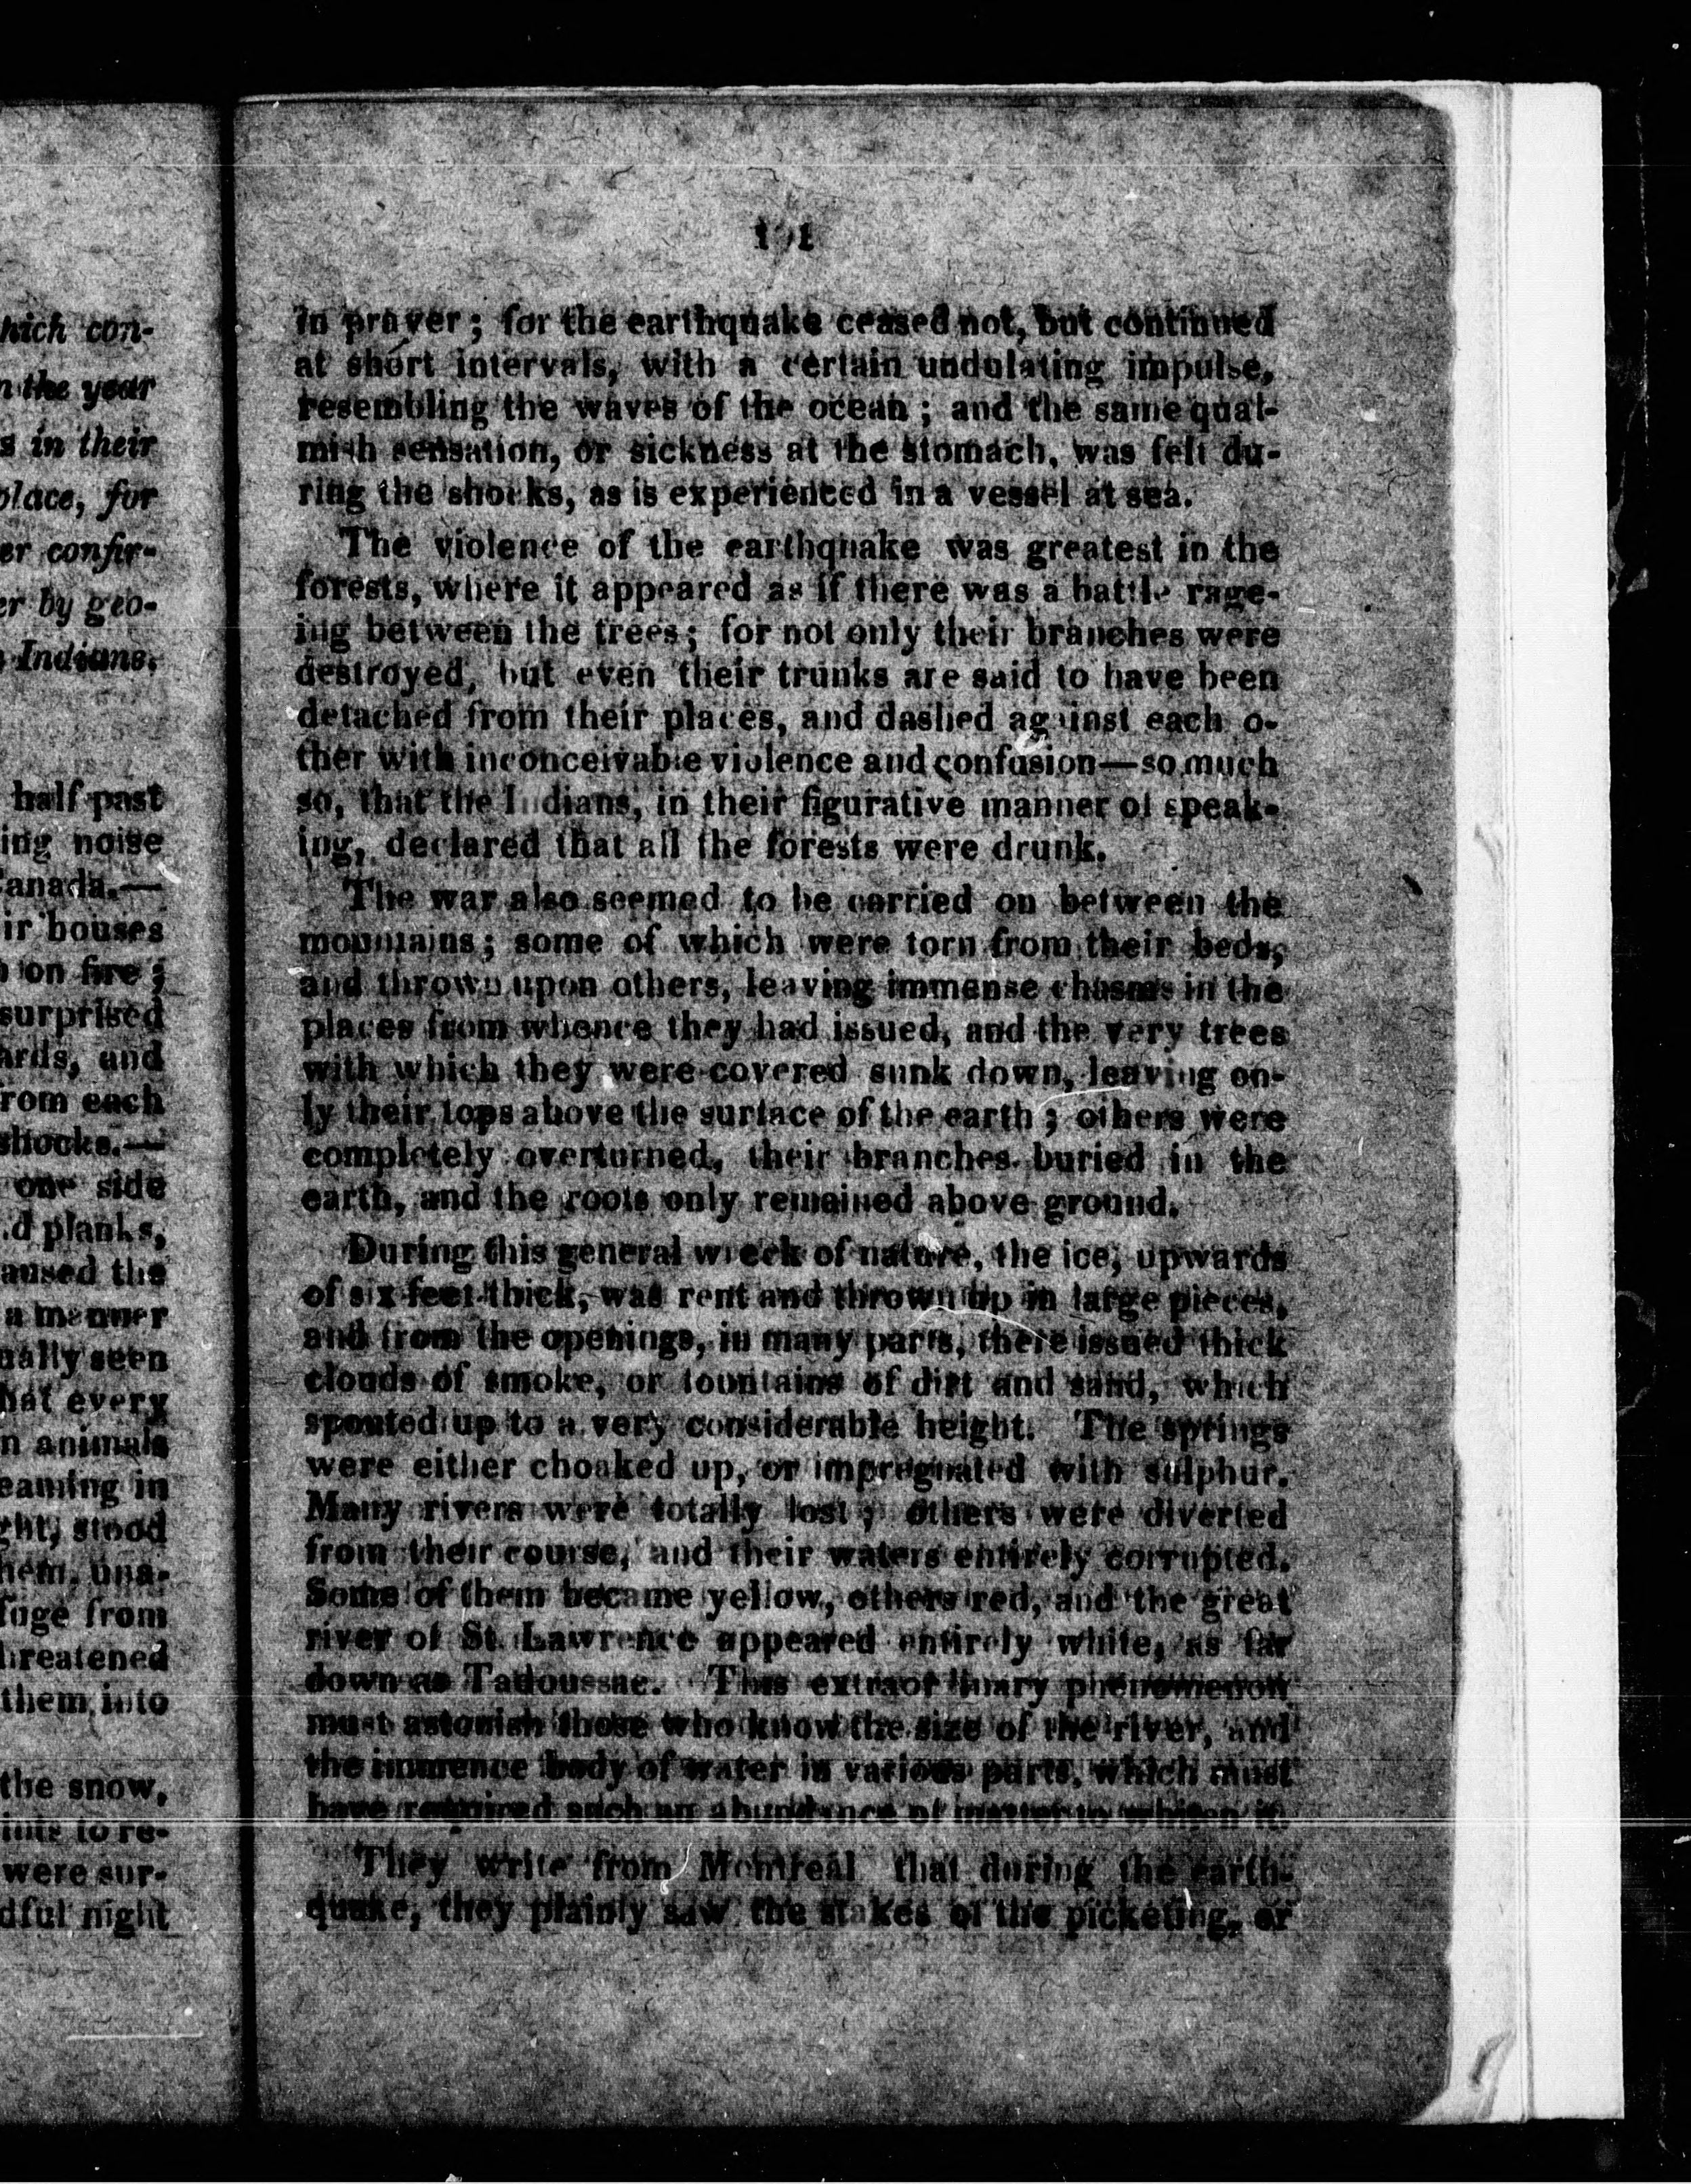 hich con-
n the year
s in their
place, for
er confir-
er by geo-
Indians.
half past
ing noise
Canada.—
ir houses
on fire ;
surprised
ards, and
from each
shocks.—
one side
d planks,
aused the
a manner
ually seen
hat every
n animals
eaming in
ght, stood
hem, una-
fuge from
hreatened
them into
the snow,
ints to re-
were sur-
dful night
in prayer ; for the earthquake ceased not, but continued
at short intervals, with a certain undulating impulse,
resembling the waves of the ocean ; and the same qual-
mish sensation, or sickness at the stomach, was felt du-
ring the shocks, as is experienced in a vessel at sea.
The violence of the earthquake was greatest in the
forests, where it appeared as if there was a battle rage-
ing between the trees ; for not only their branches were
destroyed, but even their trunks are said to have been
detached from their places, and dashed against each o-
ther with inconceivable violence and confusion—so much
so, that the Indians, in their figurative manner of speak-
ing, declared that all the forests were drunk.
The war also seemed to be carried on between the
mountains ; some of which were torn from their beds,
and thrown upon others, leaving immense chasms in the
places from whence they had issued, and the very trees
with which they were covered sunk down, leaving on-
ly their tops above the surface of the earth ; others were
completely overturned, their branches buried in the
earth, and the roots only remained above ground.
During this general wreck of nature, the ice, upwards
of six feet thick, was rent and thrown up in large pieces,
and from the openings, in many parts, there issued thick
clouds of smoke, or fountains of dirt and sand, which
spouted up to a very considerable height. The springs
were either choaked up, or impregnated with sulphur.
Many rivers were totally lost ; others were diverted
from their course, and their waters entirely corrupted.
Some of them became yellow, others red, and the great
river of St. Lawrence appeared entirely white, as far
down as Tadoussac. This extraordinary phenomenon
must astonish those who know the size of the river, and
the immence body of water in various parts, which must
have required such an abundance of matter to whiten it.
They write from Montreal that during the earth-
quake, they plainly saw the stakes of the picketing, or